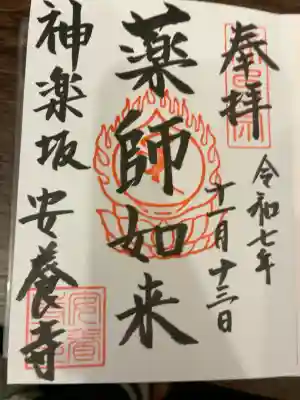 奉拝
令和七年
十一月十三日
薬師如来
神楽坂 安養寺